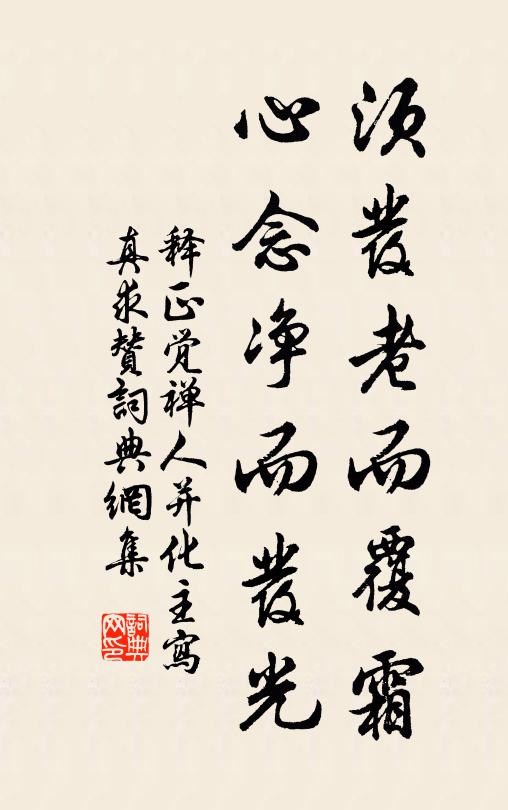 須發老而覆霜
心念净而發光
释正觉禅人并化主寫
真求贊詞典網集
詞典
网印